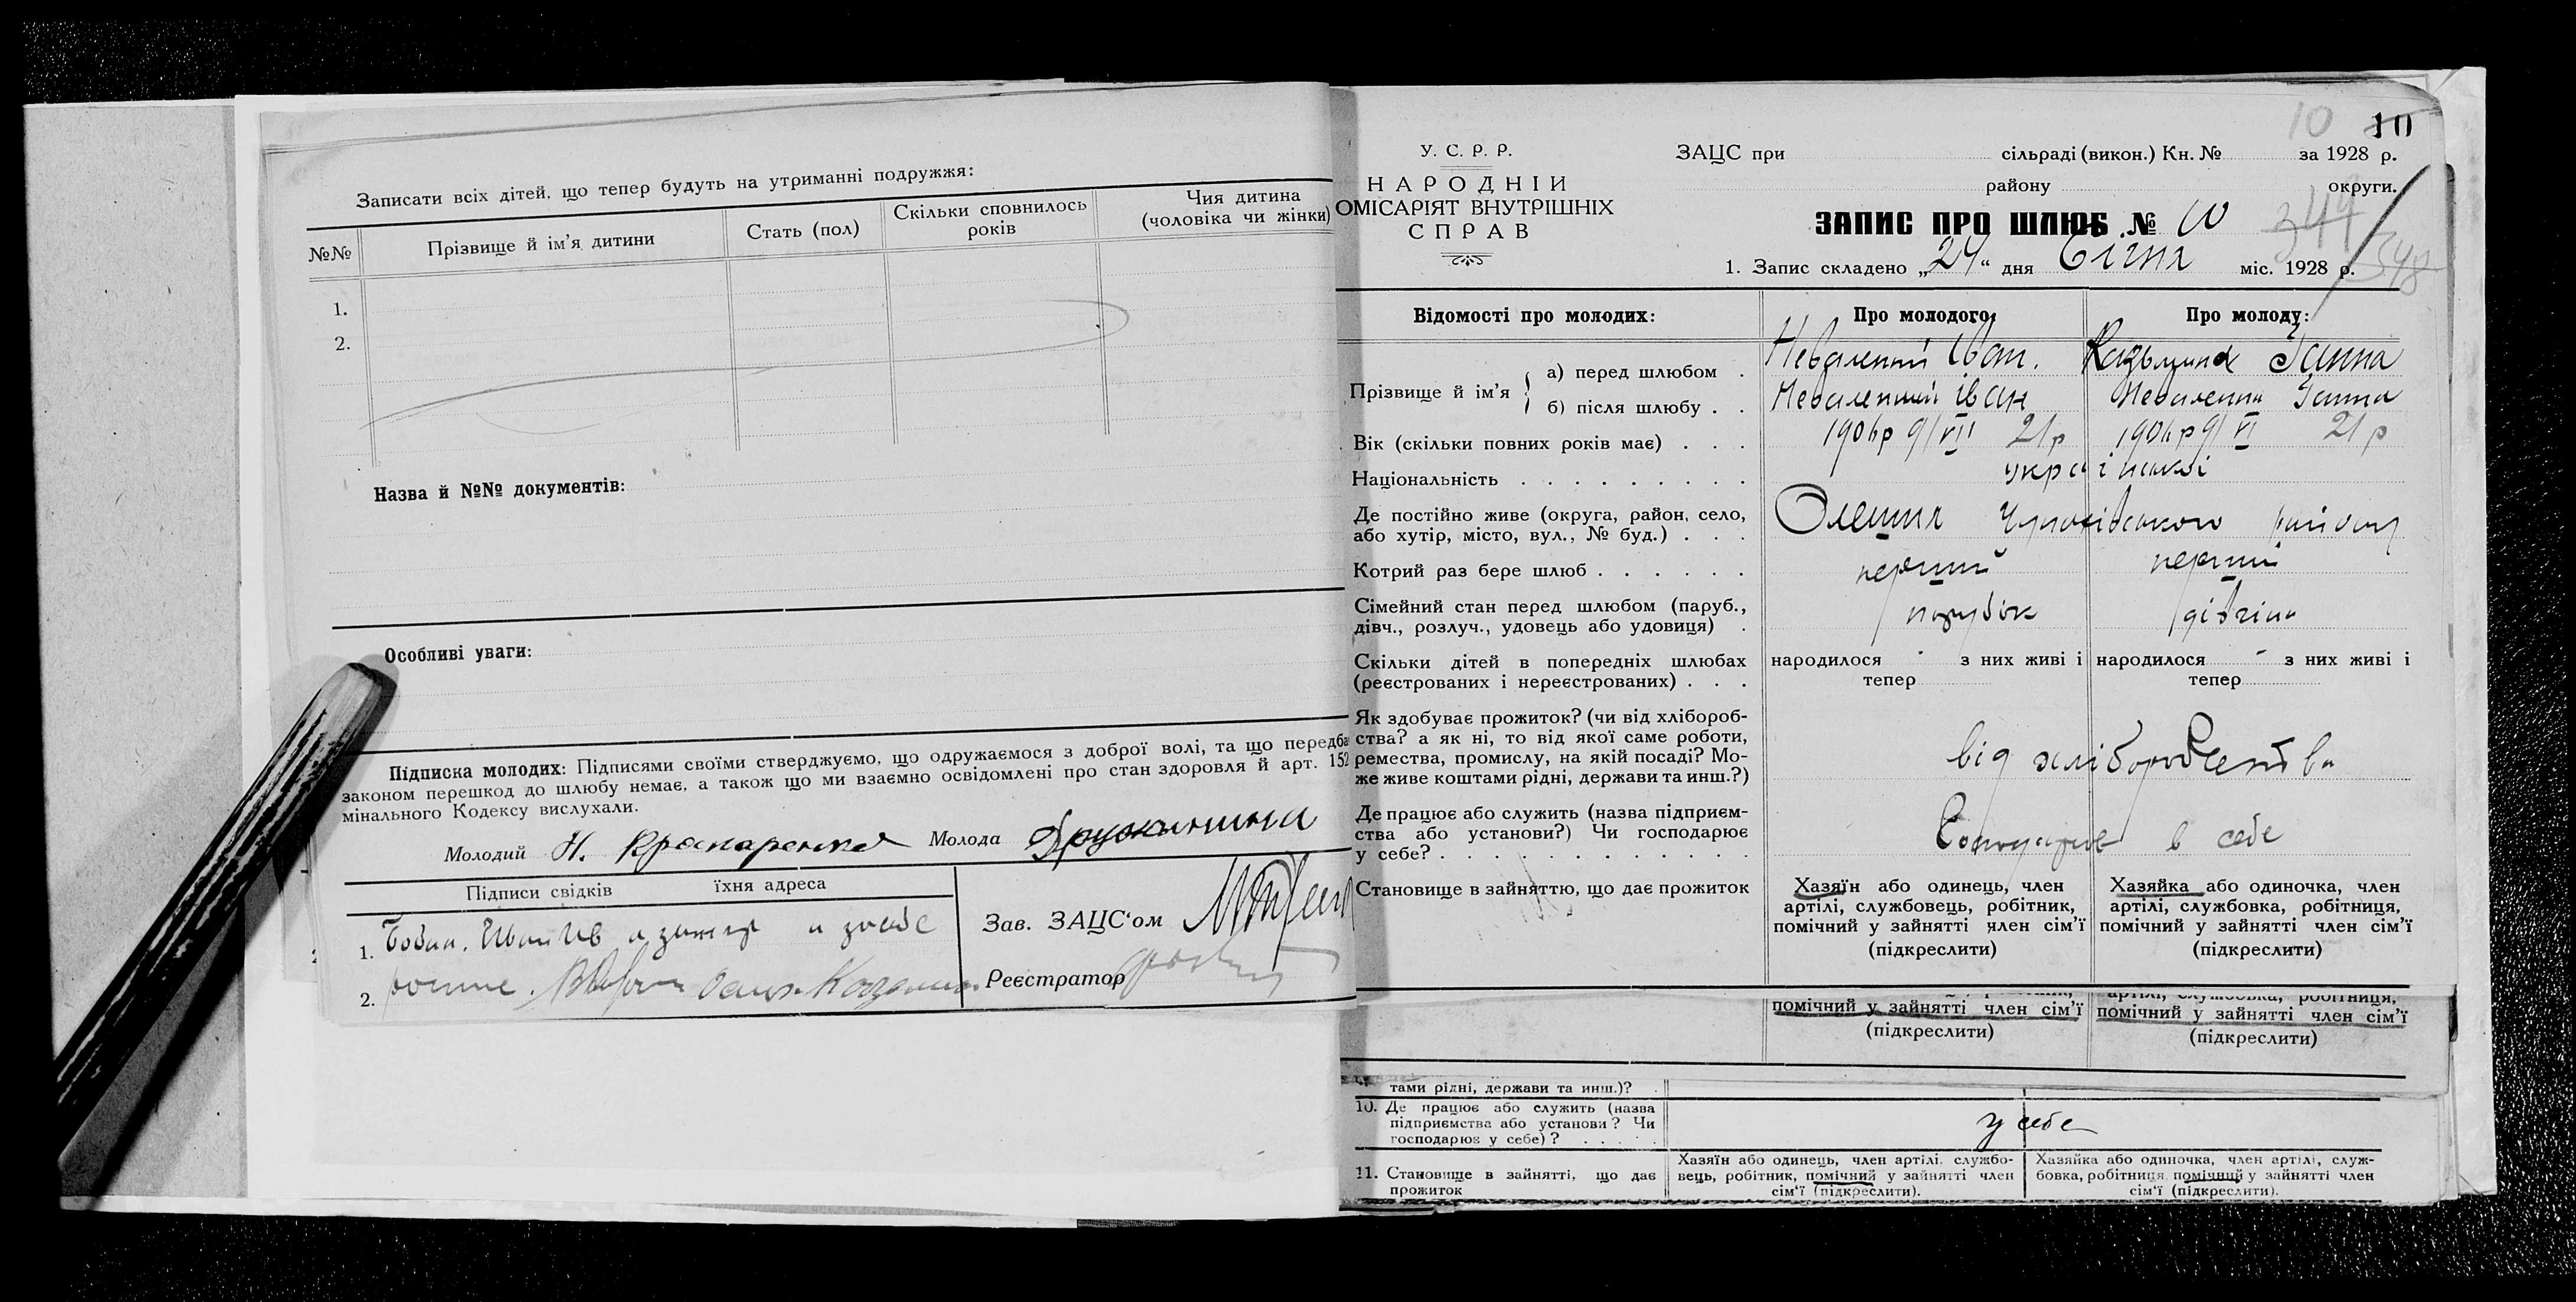 Записати всіх дітей, що тепер будуть на утриманні подружжя:
№№
Прізвище й ім'я дитини
Стать (пол)
Скільки сповнилось
років
Чия дитина
(чоловіка чи жінки)
1.
2.
Назва й №№ документів:
Особливі уваги:
Підписка молодих: Підписями своїми стверджуємо, що одружаємося з доброї волі, та що передба
законом перешкод до шлюбу немає, а також що ми взаємно освідомлені про стан здоровля й арт. 152
мінального Кодексу вислухали.
Молодий Н.
Молода
Підписи свідків їхня адреса
1.
2.
Зав. ЗАЦС'ом
Реєстратор
10 10
У. С. Р. Р.
НАРОДНІЙ
ОМІСАРІЯТ ВНУТРІШНІХ
СПРАВ
ЗАЦС при сільраді (викон.) Кн. № за 1928 р.
району округи.
ЗАПИС ПРО ШЛЮБ № 10
344
348
1. Запис складено „24“ дня Січня міс. 1928 р.
Відомості про молодих:
Про молодого:
Про молоду:
Прізвище й ім'я
а) перед шлюбом .
Іван.
Ганна
б) після шлюбу . .
Іван
Ганна
Вік (скільки повних років має) . . .
1906р 9/VII 21р
1906р 9/VI 21р
Національність . . . . . . . . .
українскі
Де постійно живе (округа, район, село,
або хутір, місто, вул., № буд.) . . .
Олешня району
Котрий раз бере шлюб . . . . . .
перший
перший
Сімейний стан перед шлюбом (паруб.,
дівч., розлуч., удовець або удовиця) .
парубок
дівчина
Скільки дітей в попередніх шлюбах
(реєстрованих і нереєстрованих) . . .
народилося - з них живі і
тепер
народилося - з них живі і
тепер
Як здобуває прожиток? (чи від хлібороб-
ства? а як ні, то від якої саме роботи,
ремества, промислу, на якій посаді? Мо-
же живе коштами рідні, держави та инш.?)
від хліборобства
Де працює або служить (назва підприєм-
ства або установи?) Чи господарює
у себе? . . . . . . . . . . . .
в себе
Становище в зайняттю, що дає прожиток
Хазяїн або одинець, член
артілі, службовець, робітник,
помічний у зайнятті член сім'ї
(підкреслити)
Хазяйка або одиночка, член
артілі, службовка, робітниця,
помічний у зайнятті член сім'ї
(підкреслити)
помічний у зайнятті член сім'ї
(підкреслити)
артілі, службовка, робітниця,
помічний у зайнятті член сім'ї
(підкреслити)
тами рідні, держави та инш.)? .
10. Де працює або служить (назва
підприємства або установи? Чи
господарює у себе)? . . . . .
у себе
11. Становище в зайнятті, що дає
прожиток
Хазяїн або одинець, член артілі, службо-
вець, робітник, помічний у зайнятті член
сім'ї (підкреслити).
Хазяйка або одиночка, член артілі, служ-
бовка, робітниця, помічний у зайнятті член
сім'ї (підкреслити).